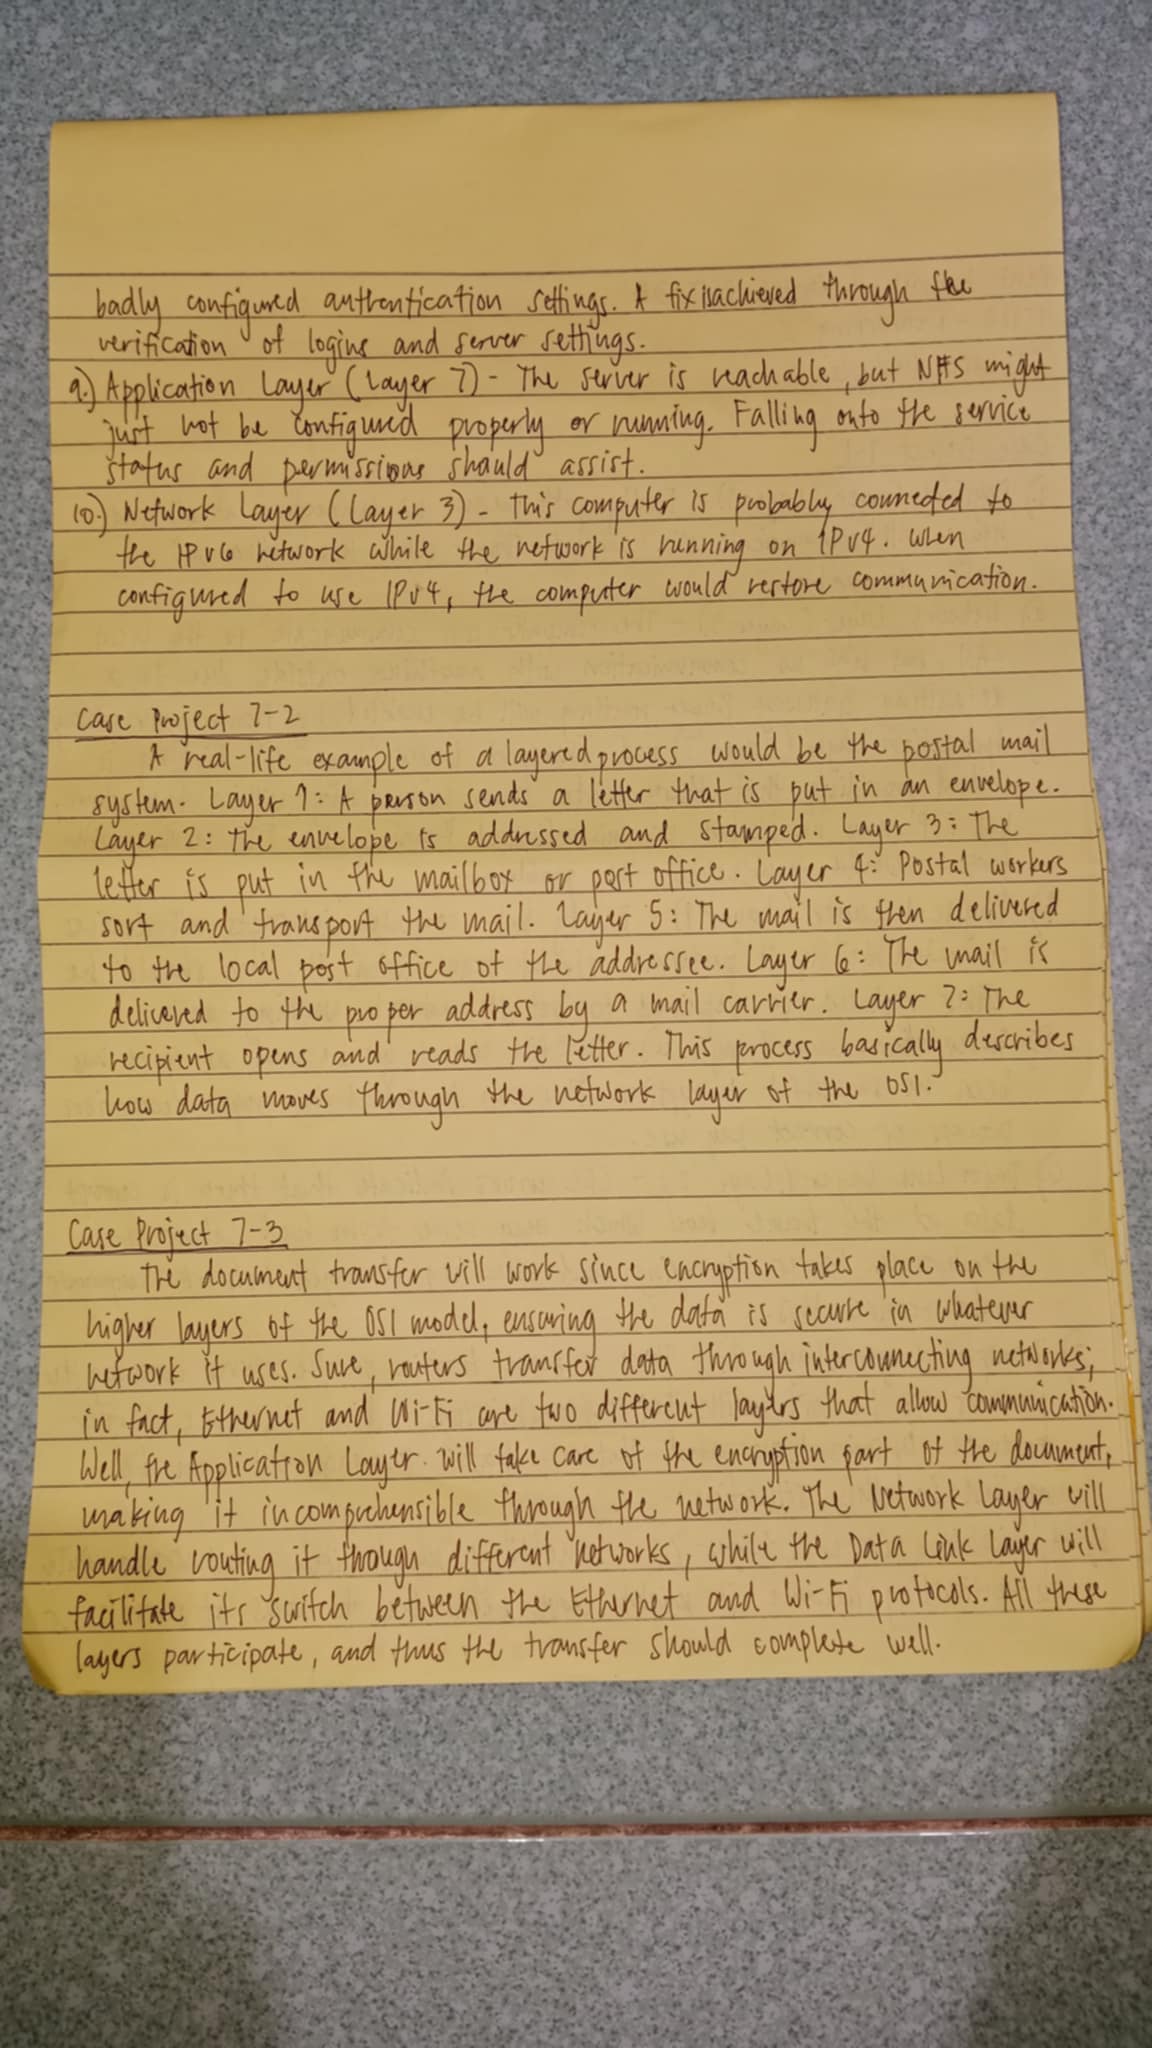 badly configured authentication settings. A fix is achieved through the
verification of logins and server settings.
9.) Application Layer (Layer 7) - The server is reachable, but NFS might
just not be configured properly or running. Falling onto the service
status and permissions should assist.
10.) Network Layer (Layer 3) - This computer is probably connected to
the IPv6 network while the network is running on IPv4. When
configured to use IPv4, the computer would restore communication.
Case Project 7-2
A real-life example of a layered process would be the postal mail
system. Layer 1: A person sends a letter that is put in an envelope.
Layer 2: The envelope is addressed and stamped. Layer 3: The
letter is put in the mailbox or post office. Layer 4: Postal workers
sort and transport the mail. Layer 5: The mail is then delivered
to the local post office of the addressee. Layer 6: The mail is
delivered to the proper address by a mail carrier. Layer 7: The
recipient opens and reads the letter. This process basically describes
how data moves through the network layer of the OSI.
Case Project 7-3
The document transfer will work since encryption takes place on the
higher layers of the OSI model, ensuring the data is secure in whatever
network it uses. Sure, routers transfer data through interconnecting networks;
in fact, Ethernet and Wi-Fi are two different layers that allow communication.
Well, the Application Layer will take care of the encryption part of the document,
making it incomprehensible through the network. The Network Layer will
handle routing it though different networks, while the Data Link Layer will
facilitate its switch between the Ethernet and Wi-Fi protocols. All these
layers participate, and thus the transfer should complete well.